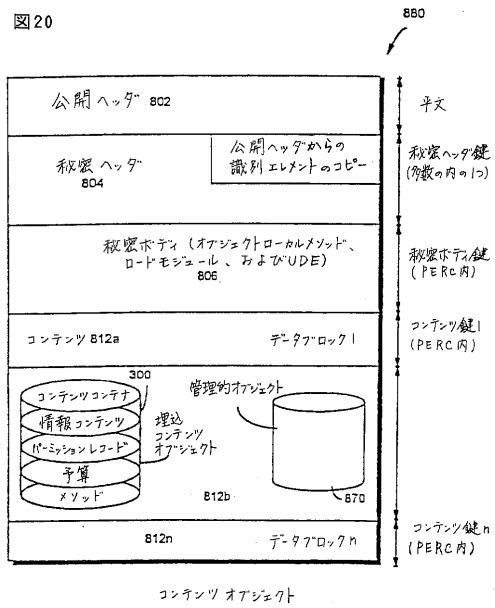 図20
880
公開ヘッダ 802
平文
秘密ヘッダ
804
公開ヘッダからの
識別エレメントのコピー
秘密ヘッダ鍵
(多数の内の1つ)
秘密ボディ (オブジェクトローカルメソッド、
ロードモジュール、およびUDE)
806
秘密ボディ鍵
(PERC内)
コンテンツ 812a
データブロック1
コンテンツ鍵1
(PERC内)
300
コンテンツコンテナ
情報コンテンツ
パーミッションレコード
予算
メソッド
埋込
コンテンツ
オブジェクト
管理的オブジェクト
812b
870
812n
データブロックn
コンテンツ鍵n
(PERC内)
コンテンツ オブジェクト